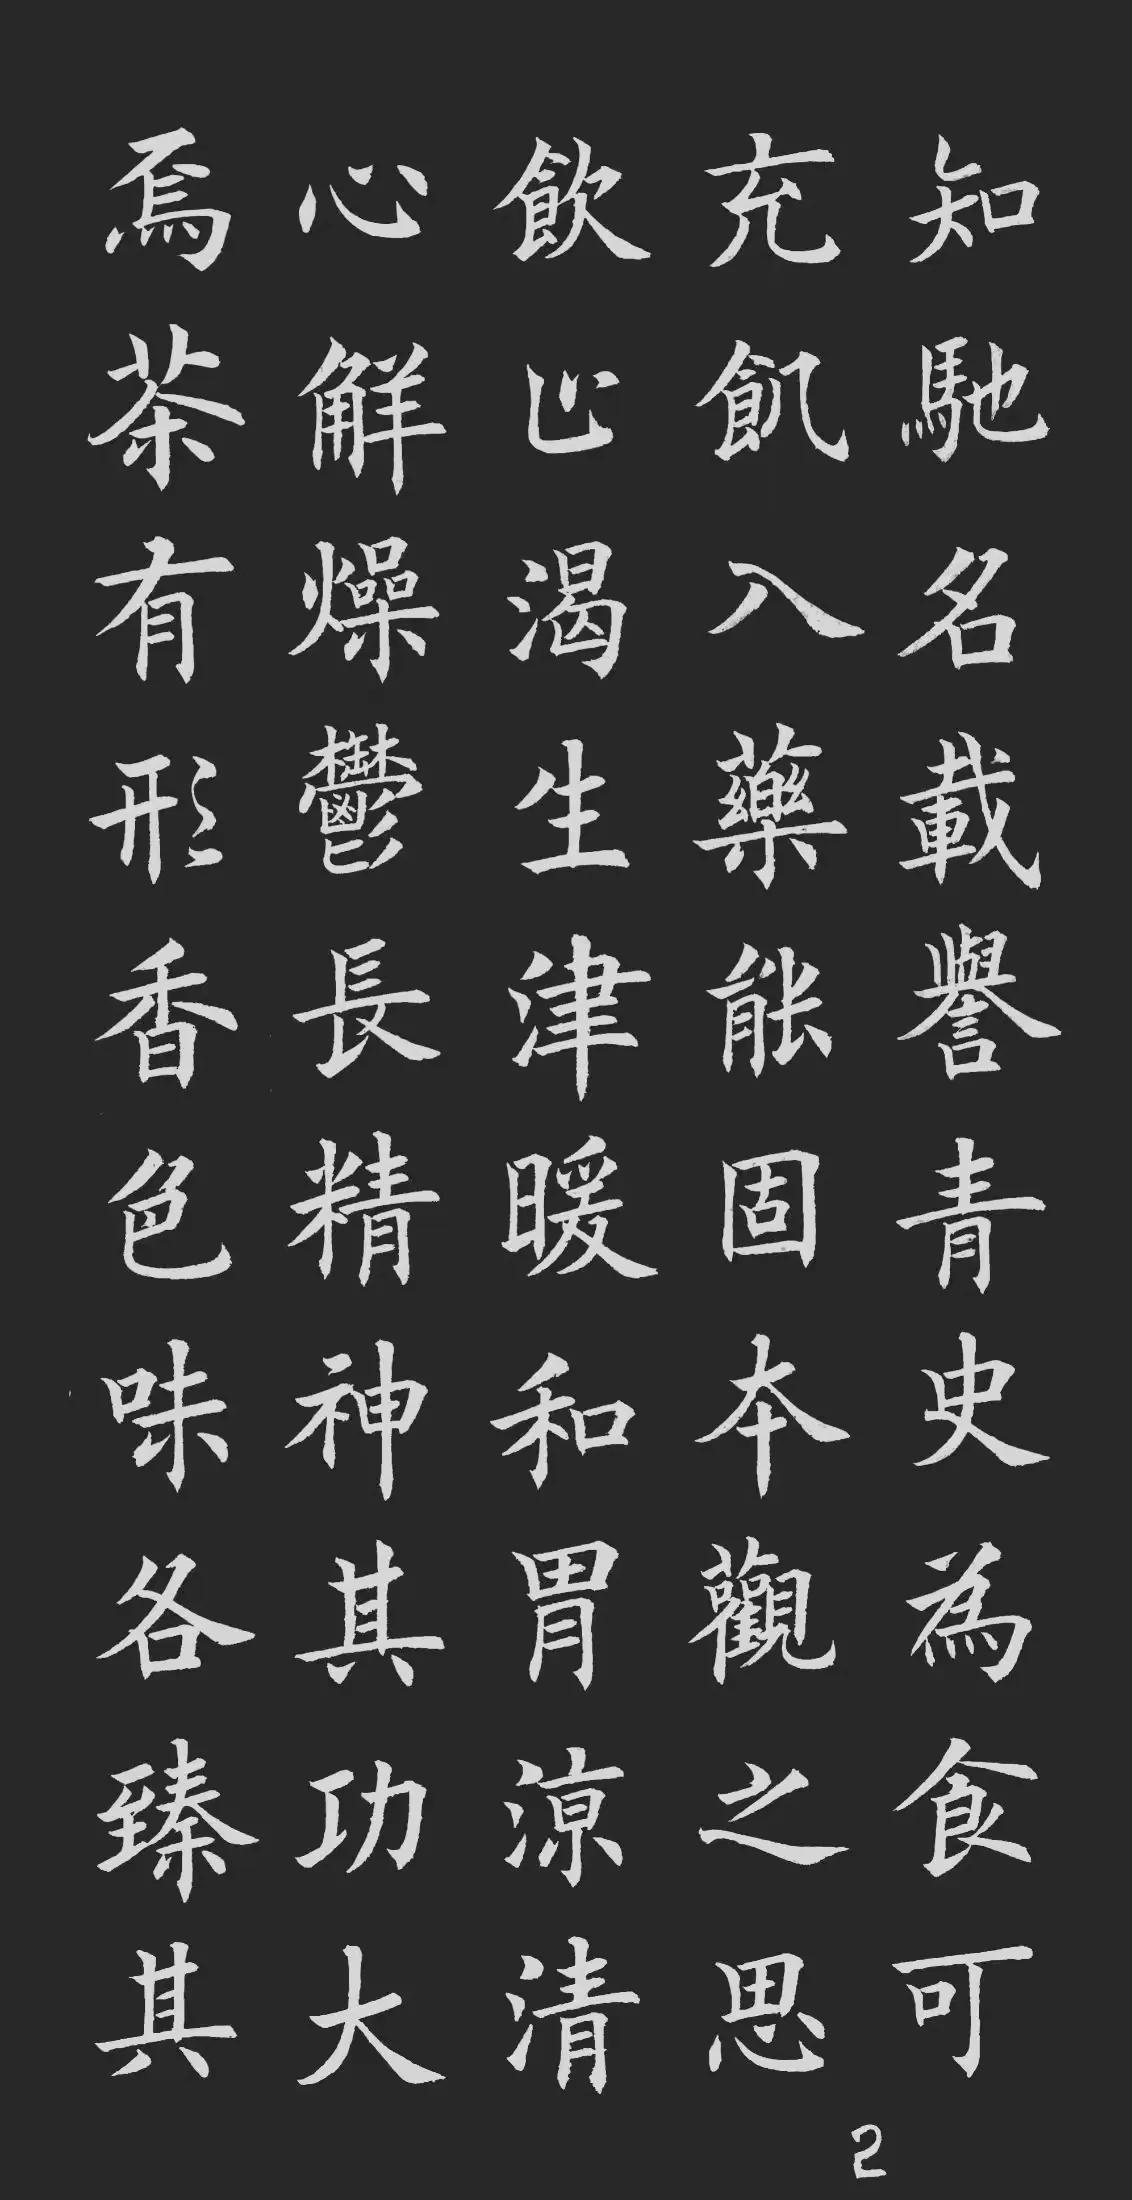 知馳名載譽青史為食可
充飢入藥能固本觀之思
飲止渴生津暖和胃涼清
心解燥鬱長精神其功大
焉茶有形香色味各臻其
2